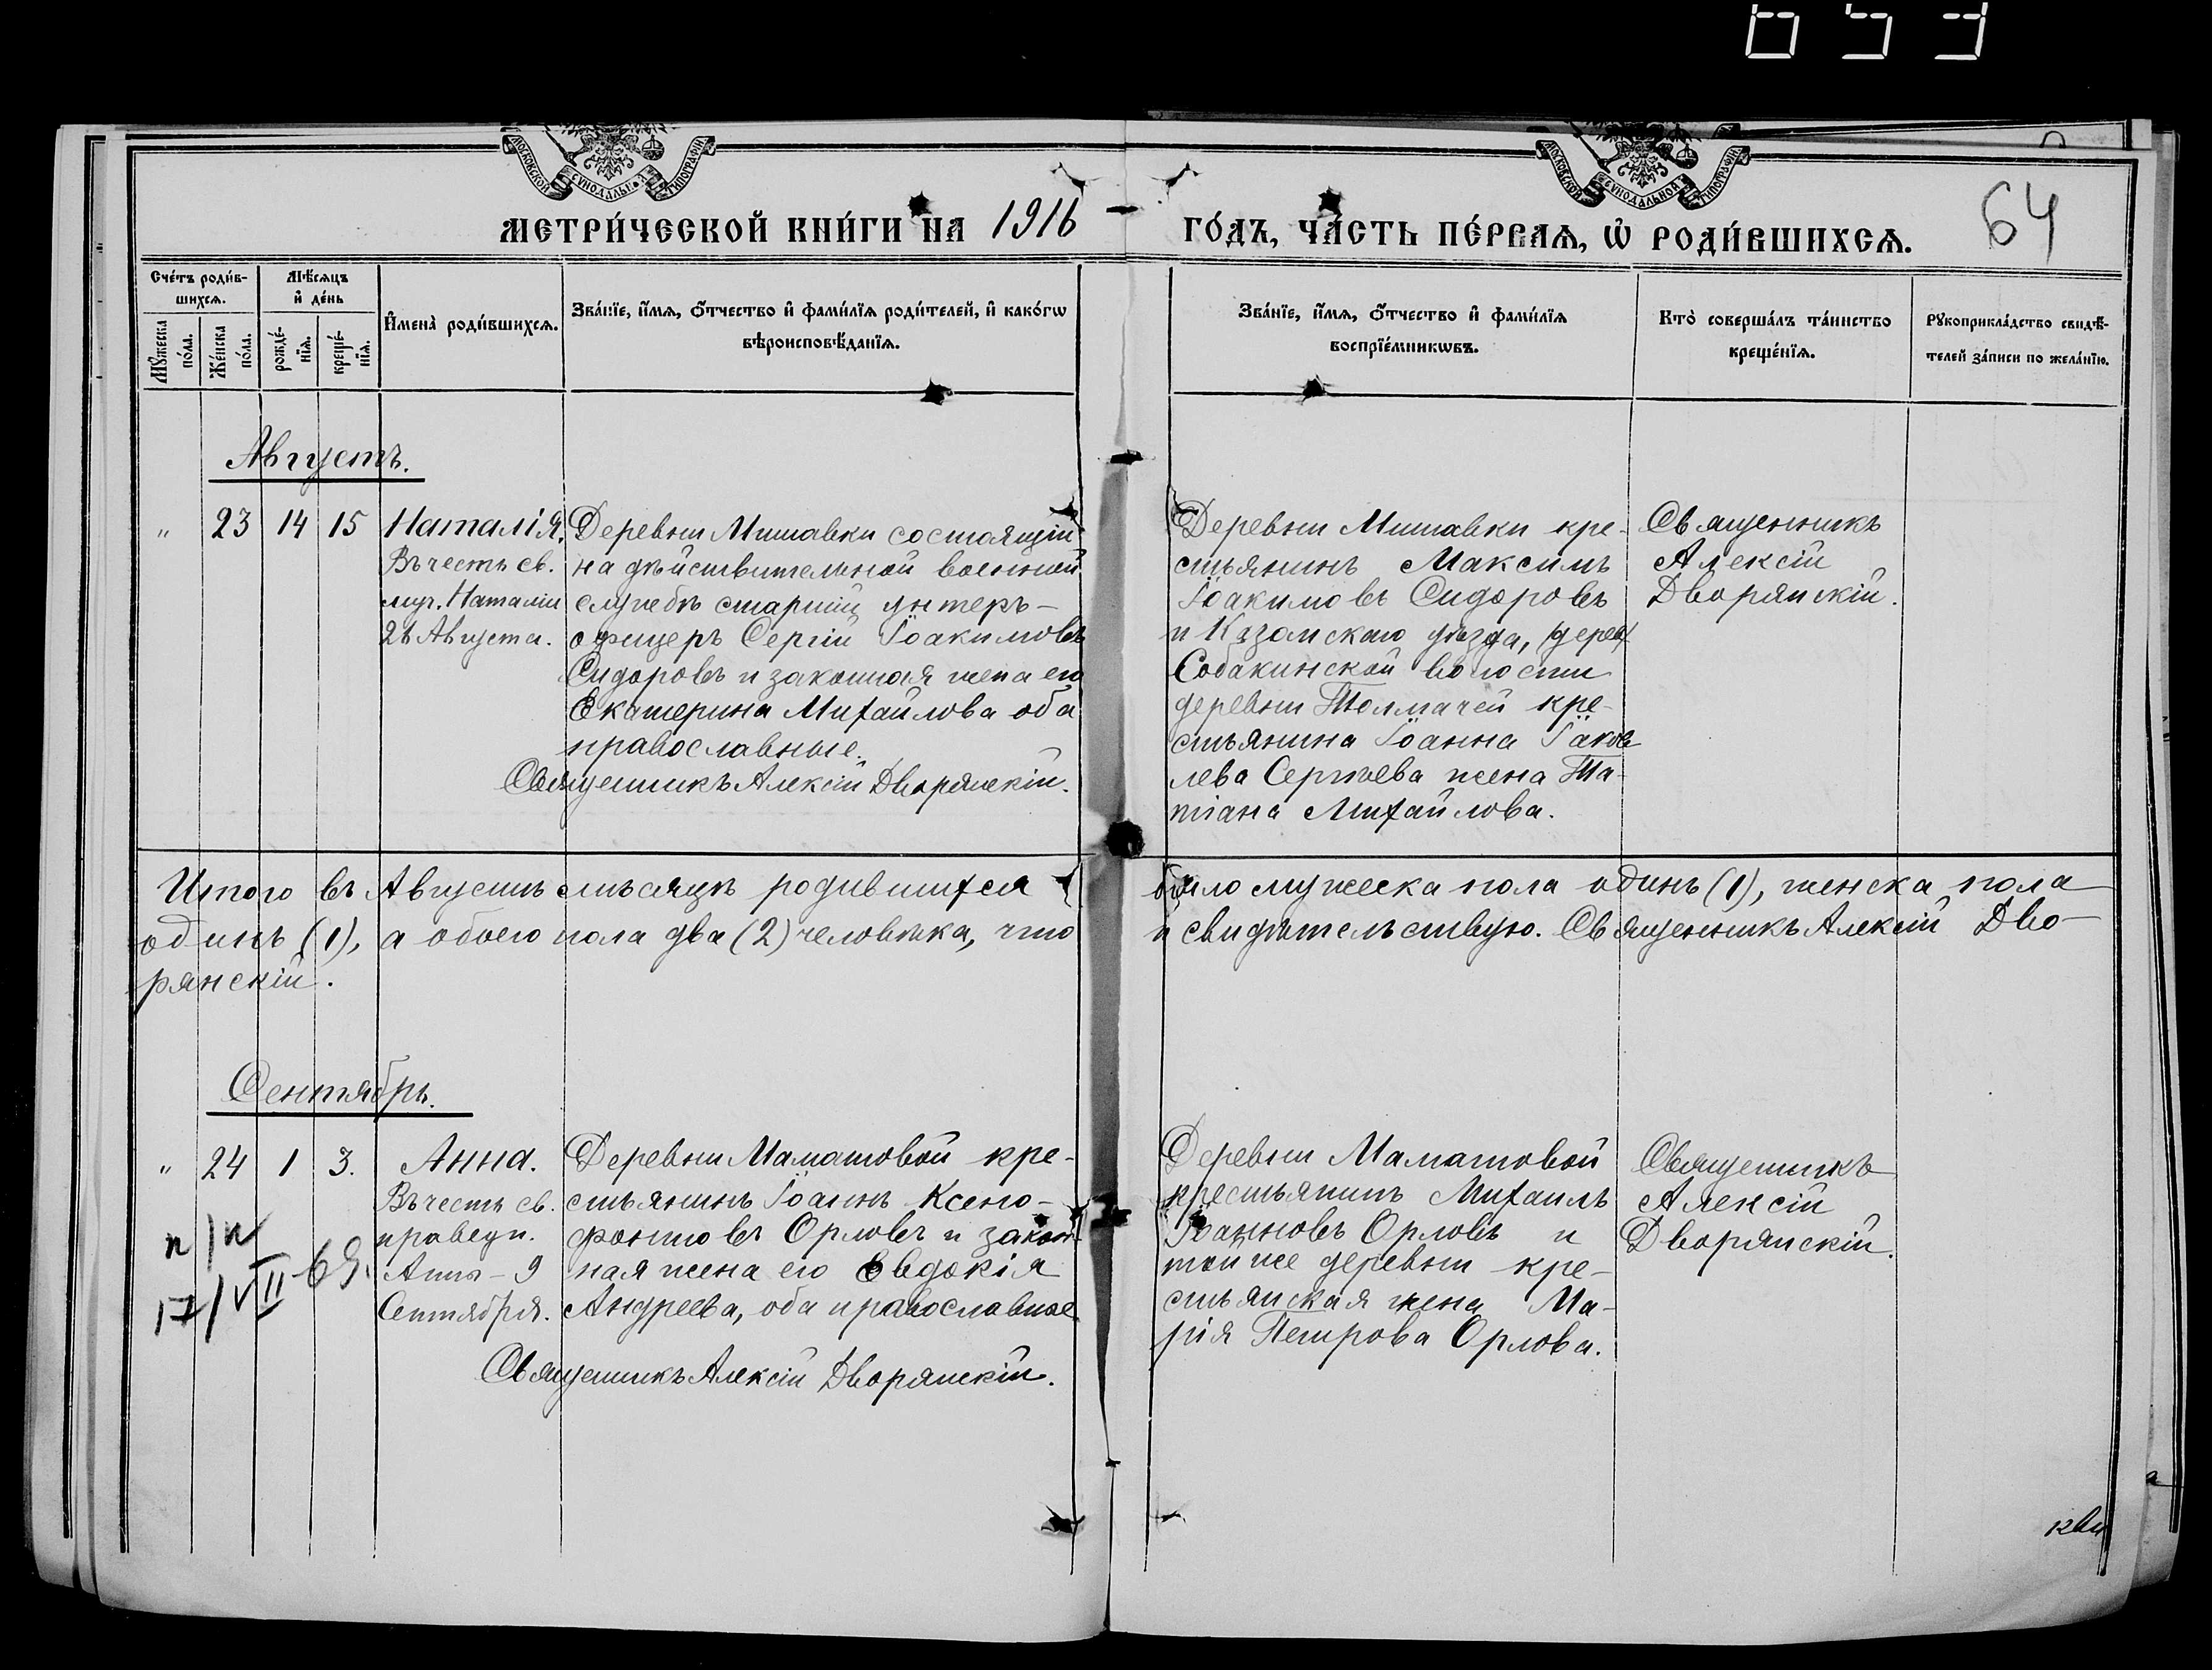 МОСКОВСКОЙ СУНОДАЛЬНОЙ ТИПОГРАФІИ
МОСКОВСКОЙ СУНОДАЛЬНОЙ ТИПОГРАФІИ
МЕТРИ́ЧЕСКОЙ КНИ́ГИ НА 1916
ГО́ДЪ, ЧА́СТЬ ПЕ́РВАѦ, Ѡ҆ РОДИ́ВШИХСѦ.
64
Сче́тъ роди́в-
шихсѧ.
Мꙋ́жеска по́ла.
Же́нска по́ла.
Мѣ́сѧцъ
и҆ де́нь
рожде́-
нїѧ.
креще́-
нїѧ.
И҆мена̀ роди́вшихсѧ.
Зва́нїе, и҆́мѧ, ѻ҆́тчество и҆ фами́лїѧ роди́телей, и҆ како́гѡ
вѣроисповѣ́данїѧ.
Зва́нїе, и҆́мѧ, ѻ҆́тчество и҆ фами́лїѧ
воспрїе́мникѡвъ.
Кто̀ соверша́лъ та́инство
креще́нїѧ.
Рꙋкоприкла́дство свидѣ́-
телей за́писи по жела́нїю.
Августъ.
" 23 14 15 Наталія.
Въ честь св.
муч. Наталіи
26 Августа.
Деревни Мишавки состоящій
на дѣйствительной военной
службѣ старшій унтеръ-
офицеръ Сергій Іоакимовъ
Сидоровъ и законная жена его
Екатерина Михайлова оба
православные.
Священникъ Алексій Дворянскій.
Деревни Мишавки кре-
стьянинъ Максимъ
Іоакимовъ Сидоровъ
и Казанскаго уѣзда,
Собакинской волости
деревни Толмачей кре-
стьянина Іоанна Іаков
лева Сергѣева жена Та-
тіана Михайлова.
Священникъ
Алексій
Дворянскій.
Итого въ Августѣ мѣсяцѣ родившихся было мужеска пола одинъ (1), женска пола
одинъ (1), а обоего пола два (2) человѣка, что и свидѣтельствую. Священникъ Алексій Дво-
рянскій.
Сентябрь.
" 24 1 3. Анна.
Въ честь св.
праведн.
Анны - 9
Сентября.
п/п
17/VII-69.
Деревни Маматовой кре-
стьянинъ Іоаннъ Ксено-
фонтовъ Орловъ и закон-
ная жена его Евдокія
Андреева, оба православные
Священникъ Алексій Дворянскій.
Деревни Маматовой
крестьянинъ Михаилъ
Іоанновъ Орловъ и
той же деревни кре-
стьянская жена Ма-
рія Петрова Орлова.
Священникъ
Алексій
Дворянскій.